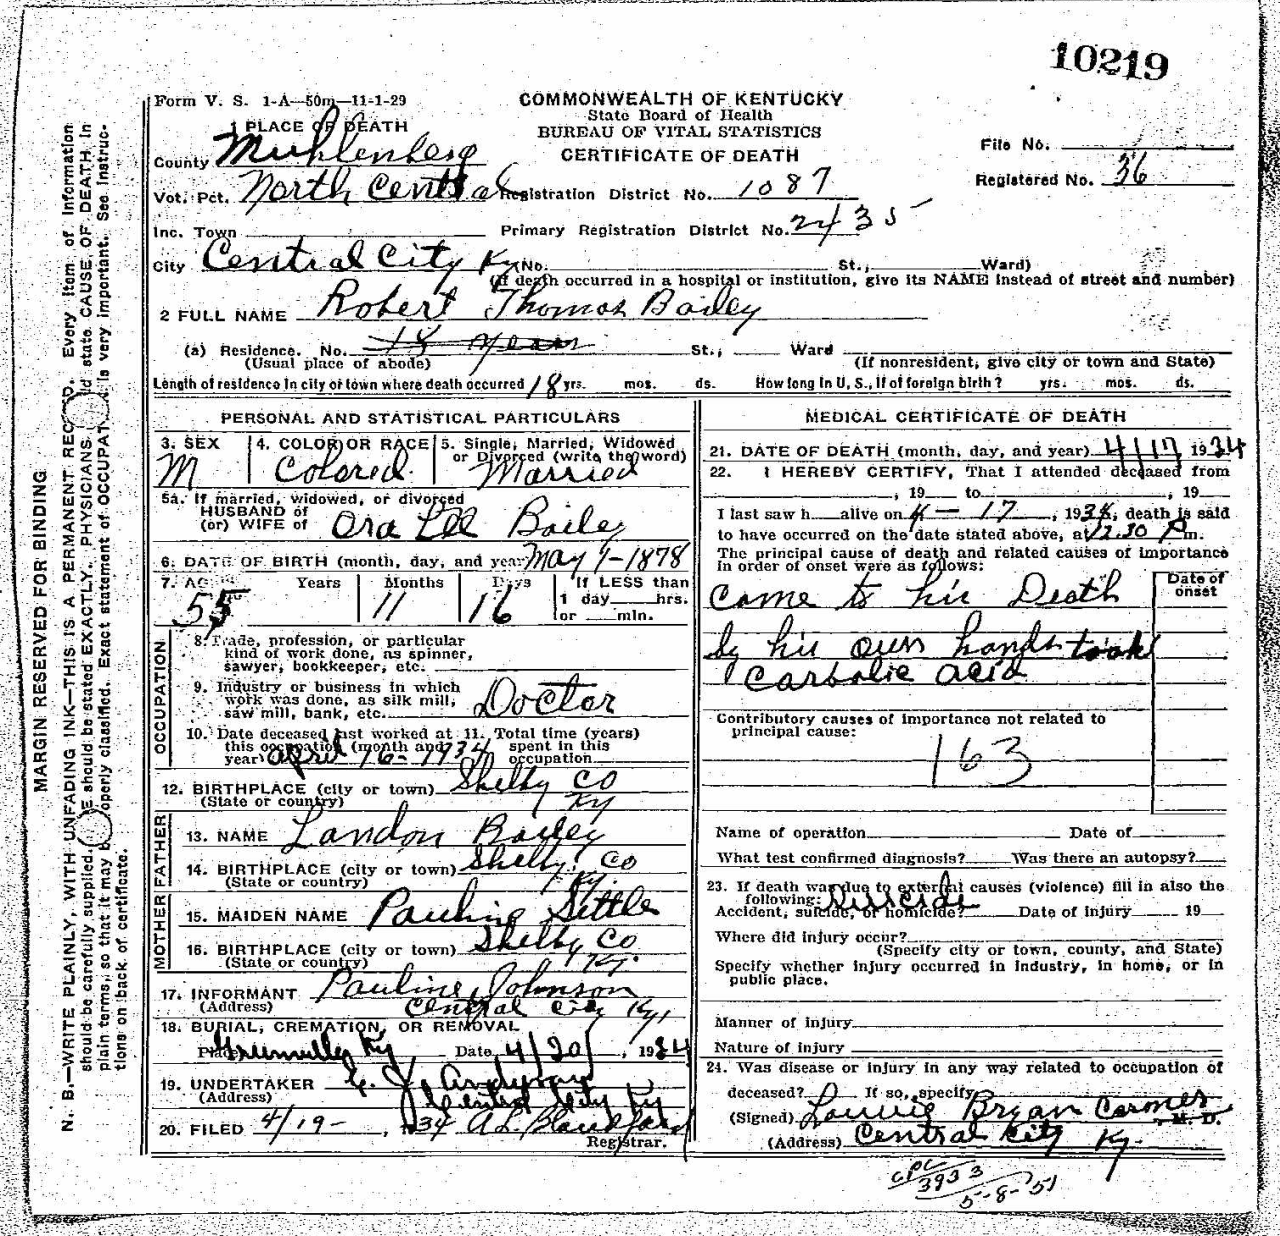 10219
Form V. S. 1-A—50m—11-1-29
COMMONWEALTH OF KENTUCKY
State Board of Health
BUREAU OF VITAL STATISTICS
CERTIFICATE OF DEATH
1 PLACE OF DEATH
County Muhlenberg
File No.
Registered No. 36
Vot. Pct. North Central Registration District No. 1087
Inc. Town Primary Registration District No. 2435
City Central City Ky No. St., Ward)
(If death occurred in a hospital or institution, give its NAME instead of street and number)
2 FULL NAME Robert Thomas Bailey
(a) Residence. No. 18 years St., Ward
(Usual place of abode) (If nonresident, give city or town and State)
Length of residence in city or town where death occurred 18 yrs. mos. ds. How long in U. S., if of foreign birth? yrs. mos. ds.
PERSONAL AND STATISTICAL PARTICULARS
3. SEX 4. COLOR OR RACE 5. Single, Married, Widowed
or Divorced (write the word)
M Colored Married
5a. If married, widowed, or divorced
HUSBAND of
(or) WIFE of Ora Lee Bailey
6. DATE OF BIRTH (month, day, and year) May 1-1878
7. AGE Years Months Days If LESS than
1 day hrs.
or min.
55 11 16
OCCUPATION
8. Trade, profession, or particular
kind of work done, as spinner,
sawyer, bookkeeper, etc.
9. Industry or business in which
work was done, as silk mill,
saw mill, bank, etc. Doctor
10. Date deceased last worked at 11. Total time (years)
this occupation (month and spent in this
year) April 16-1934 occupation
12. BIRTHPLACE (city or town) Shelby Co
(State or country) Ky
FATHER
13. NAME Landon Bailey
14. BIRTHPLACE (city or town) Shelby Co
(State or country) Ky
MOTHER
15. MAIDEN NAME Pauline Settle
16. BIRTHPLACE (city or town) Shelby Co
(State or country) Ky.
17. INFORMANT Pauline Johnson
(Address) Central City Ky
18. BURIAL, CREMATION, OR REMOVAL
Place Greenville Ky Date 4/20, 1934
19. UNDERTAKER
(Address) Central City Ky
20. FILED 4/19-, 1934 A L Blandford
Registrar.
MEDICAL CERTIFICATE OF DEATH
21. DATE OF DEATH (month, day, and year) 4/17 1934
22. I HEREBY CERTIFY, That I attended deceased from
, 19 to , 19
I last saw h alive on 4-17, 1934, death is said
to have occurred on the date stated above, at 12.30 P m.
The principal cause of death and related causes of importance
in order of onset were as follows:
Date of
onset
Came to his Death
by his own hands took
Carbolic acid
Contributory causes of importance not related to
principal cause:
163
Name of operation Date of
What test confirmed diagnosis? Was there an autopsy?
23. If death was due to external causes (violence) fill in also the
following:
Accident, suicide, or homicide? Suicide Date of injury 19
Where did injury occur?
(Specify city or town, county, and State)
Specify whether injury occurred in industry, in home, or in
public place.
Manner of injury
Nature of injury
24. Was disease or injury in any way related to occupation of
deceased? If so, specify
(Signed) Lonnie Bryan Coroner, M. D.
(Address) Central City Ky.
CPC
3933
5-8-51
MARGIN RESERVED FOR BINDING
N. B.—WRITE PLAINLY, WITH UNFADING INK—THIS IS A PERMANENT RECORD. Every item of information
should be carefully supplied. AGE should be stated EXACTLY. PHYSICIANS should state CAUSE OF DEATH in
plain terms, so that it may be properly classified. Exact statement of OCCUPATION is very important. See instruc-
tions on back of certificate.